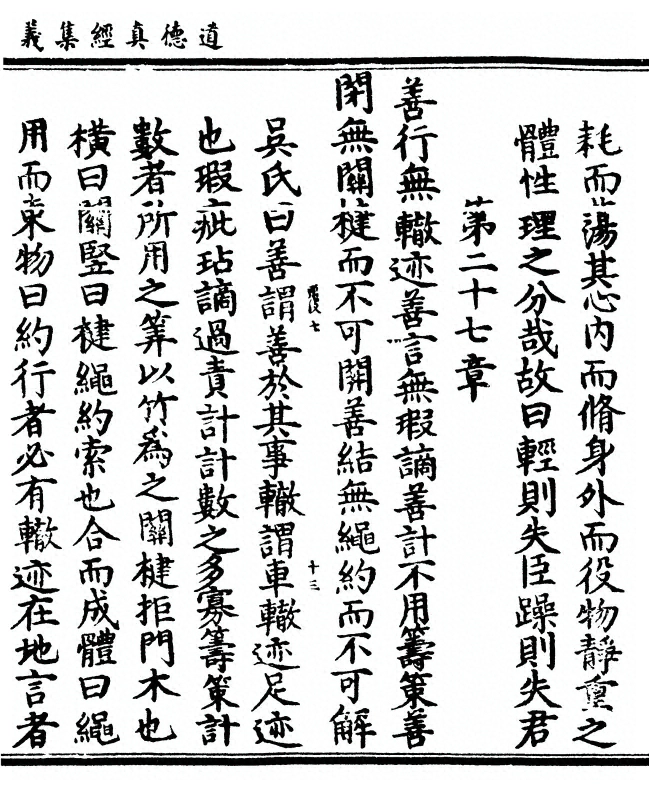 道德真經集義
耗而蕩其心內而脩身外而役物靜重之
體性理之分哉故曰輕則失臣躁則失君
第二十七章
善行無轍迹善言無瑕謫善計不用籌策善
閉無關楗而不可開善結無繩約而不可解
吳氏曰善謂善於其事轍謂車轍迹足迹
也瑕疵玷謫過責計計數之多寡籌策計
數者所用之筭以竹為之關楗拒門木也
橫曰關竪曰楗繩約索也合而成體曰繩
用而束物曰約行者必有轍迹在地言者
十三